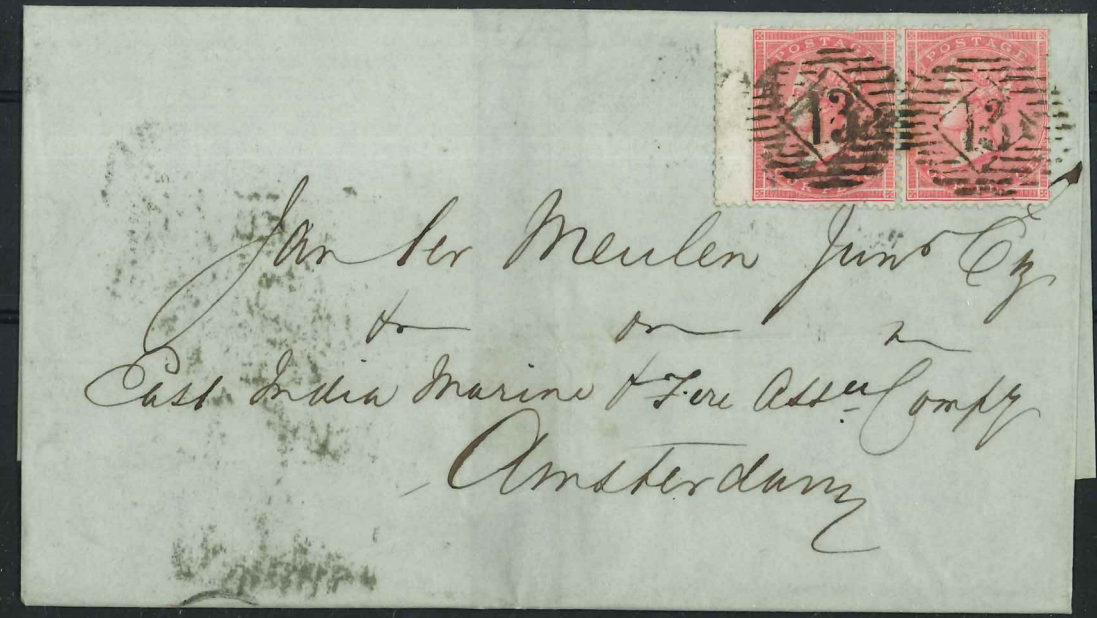 POSTAGE POSTAGE
13 13
Jan ter Meulen Junr Esq
East India Marine & Fire Assce Compy
Amsterdam